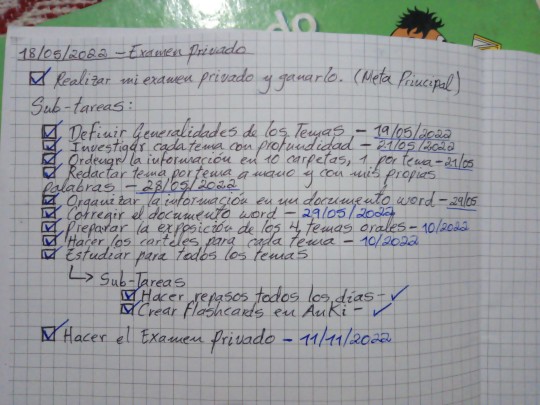 18/05/2022 - Examen Privado
Realizar mi examen privado y ganarlo. (Meta Principal)
Sub-tareas:
Definir Generalidades de los Temas - 19/05/2022
Investigar cada tema con profundidad - 21/05/2022
Ordenar la información en 10 carpetas, 1 por tema - 21/05
Redactar tema por tema a mano y con mis propias
palabras - 28/05/2022
Organizar la información en un documento word - 29/05
Corregir el documento word - 29/05/2022
Preparar la exposición de los 4 temas orales - 10/2022
Hacer los carteles para cada tema - 10/2022
Estudiar para todos los temas
Sub-Tareas
Hacer repasos todos los días -
Crear Flashcards en Anki -
Hacer el Examen Privado - 11/11/2022